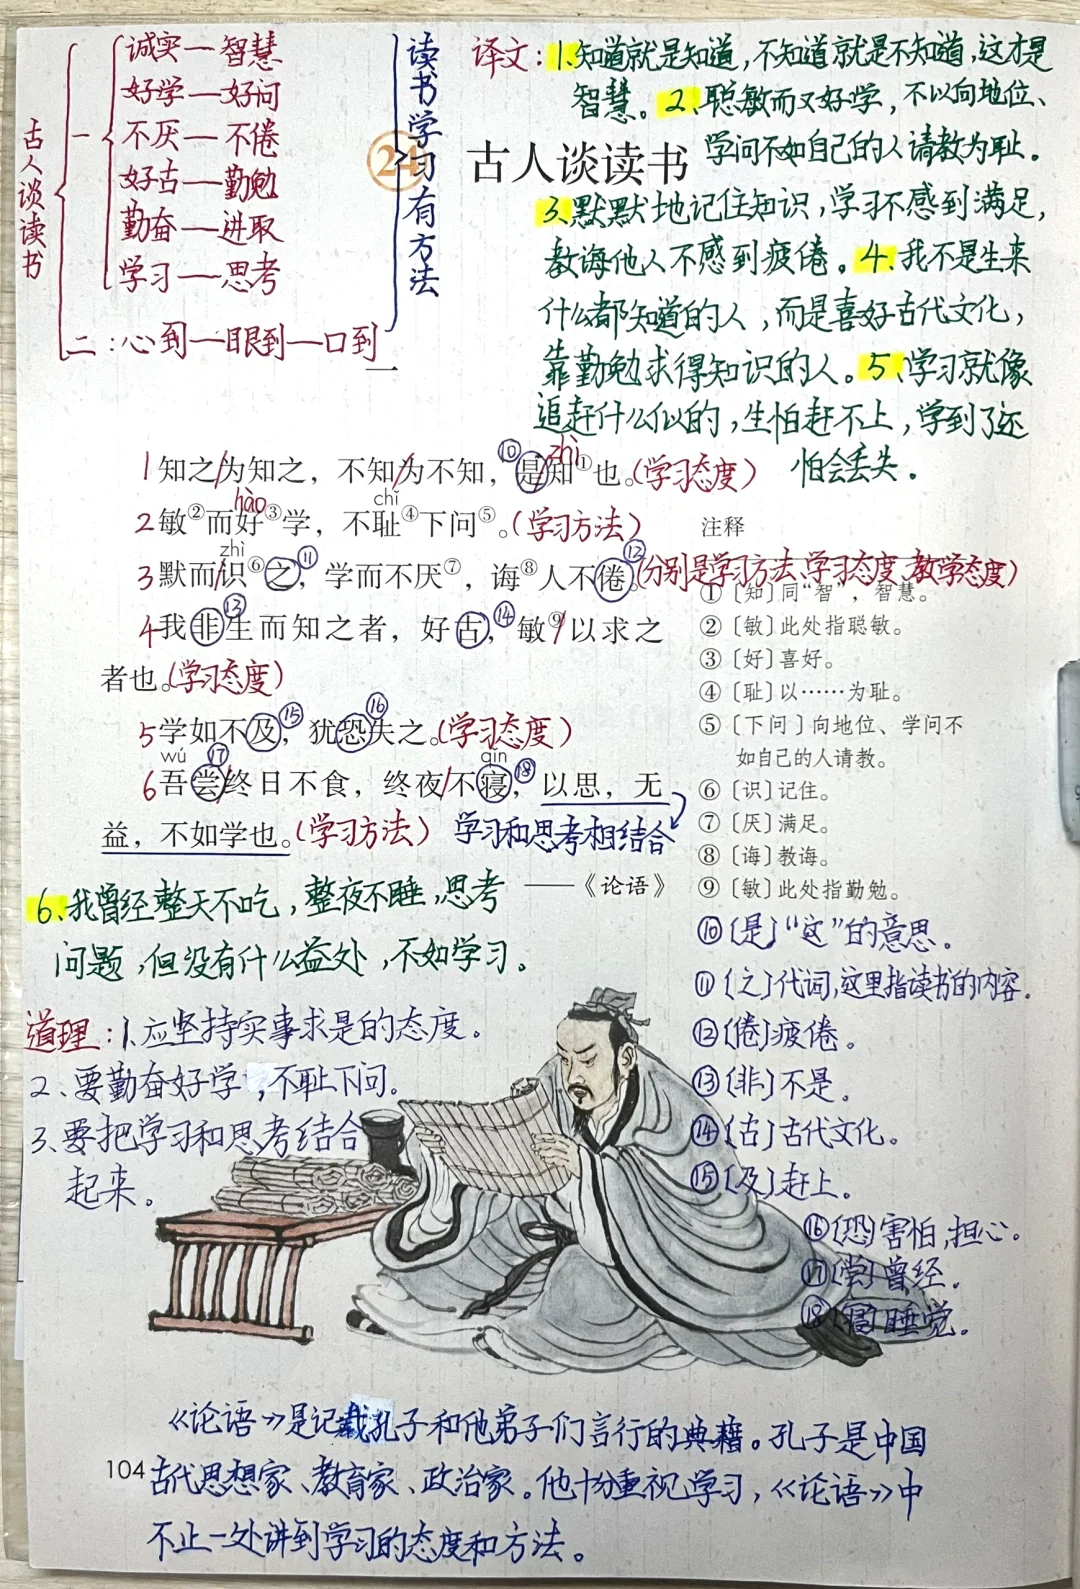 古人谈读书
一
诚实—智慧
好学—好问
不厌—不倦
好古—勤勉
勤奋—进取
学习—思考
二：心到—眼到—口到
读书学习有方法
24 古人谈读书
译文：1、知道就是知道，不知道就是不知道，这才是
智慧。2、聪敏而又好学，不以向地位、
学问不如自己的人请教为耻。
3、默默地记住知识，学习不感到满足，
教诲他人不感到疲倦。4、我不是生来
什么都知道的人，而是喜好古代文化，
靠勤勉求得知识的人。5、学习就像
追赶什么似的，生怕赶不上，学到了还
怕会丢失。
一
zhì
1 知之/为知之，不知/为不知，⑩是知①也。(学习态度)
hào chǐ
2 敏②而好③学，不耻④下问⑤。(学习方法)
zhì
3 默而/识⑥之⑪，学而不厌⑦，诲⑧人不倦⑫。(分别是学习方法、学习态度、教学态度)
4 我非⑬生而知之者，好古⑭，敏⑨/以求之
者也。(学习态度)
5 学如不及⑮，犹恐⑯失之。(学习态度)
wú qǐn
6 吾尝⑰/终日不食，终夜/不寝⑱，以思，无
益，不如学也。(学习方法) 学习和思考相结合
——《论语》
注释
①〔知〕同“智”，智慧。
②〔敏〕此处指聪敏。
③〔好〕喜好。
④〔耻〕以……为耻。
⑤〔下问〕向地位、学问不
如自己的人请教。
⑥〔识〕记住。
⑦〔厌〕满足。
⑧〔诲〕教诲。
⑨〔敏〕此处指勤勉。
⑩〔是〕“这”的意思。
⑪〔之〕代词，这里指读书的内容。
⑫〔倦〕疲倦。
⑬〔非〕不是。
⑭〔古〕古代文化。
⑮〔及〕赶上。
⑯〔恐〕害怕，担心。
⑰〔尝〕曾经。
⑱〔寝〕睡觉。
6、我曾经整天不吃，整夜不睡，思考
问题，但没有什么益处，不如学习。
道理：1、应坚持实事求是的态度。
2、要勤奋好学，不耻下问。
3、要把学习和思考结合
起来。
《论语》是记载孔子和他弟子们言行的典籍。孔子是中国
古代思想家、教育家、政治家。他十分重视学习，《论语》中
不止一处讲到学习的态度和方法。
104